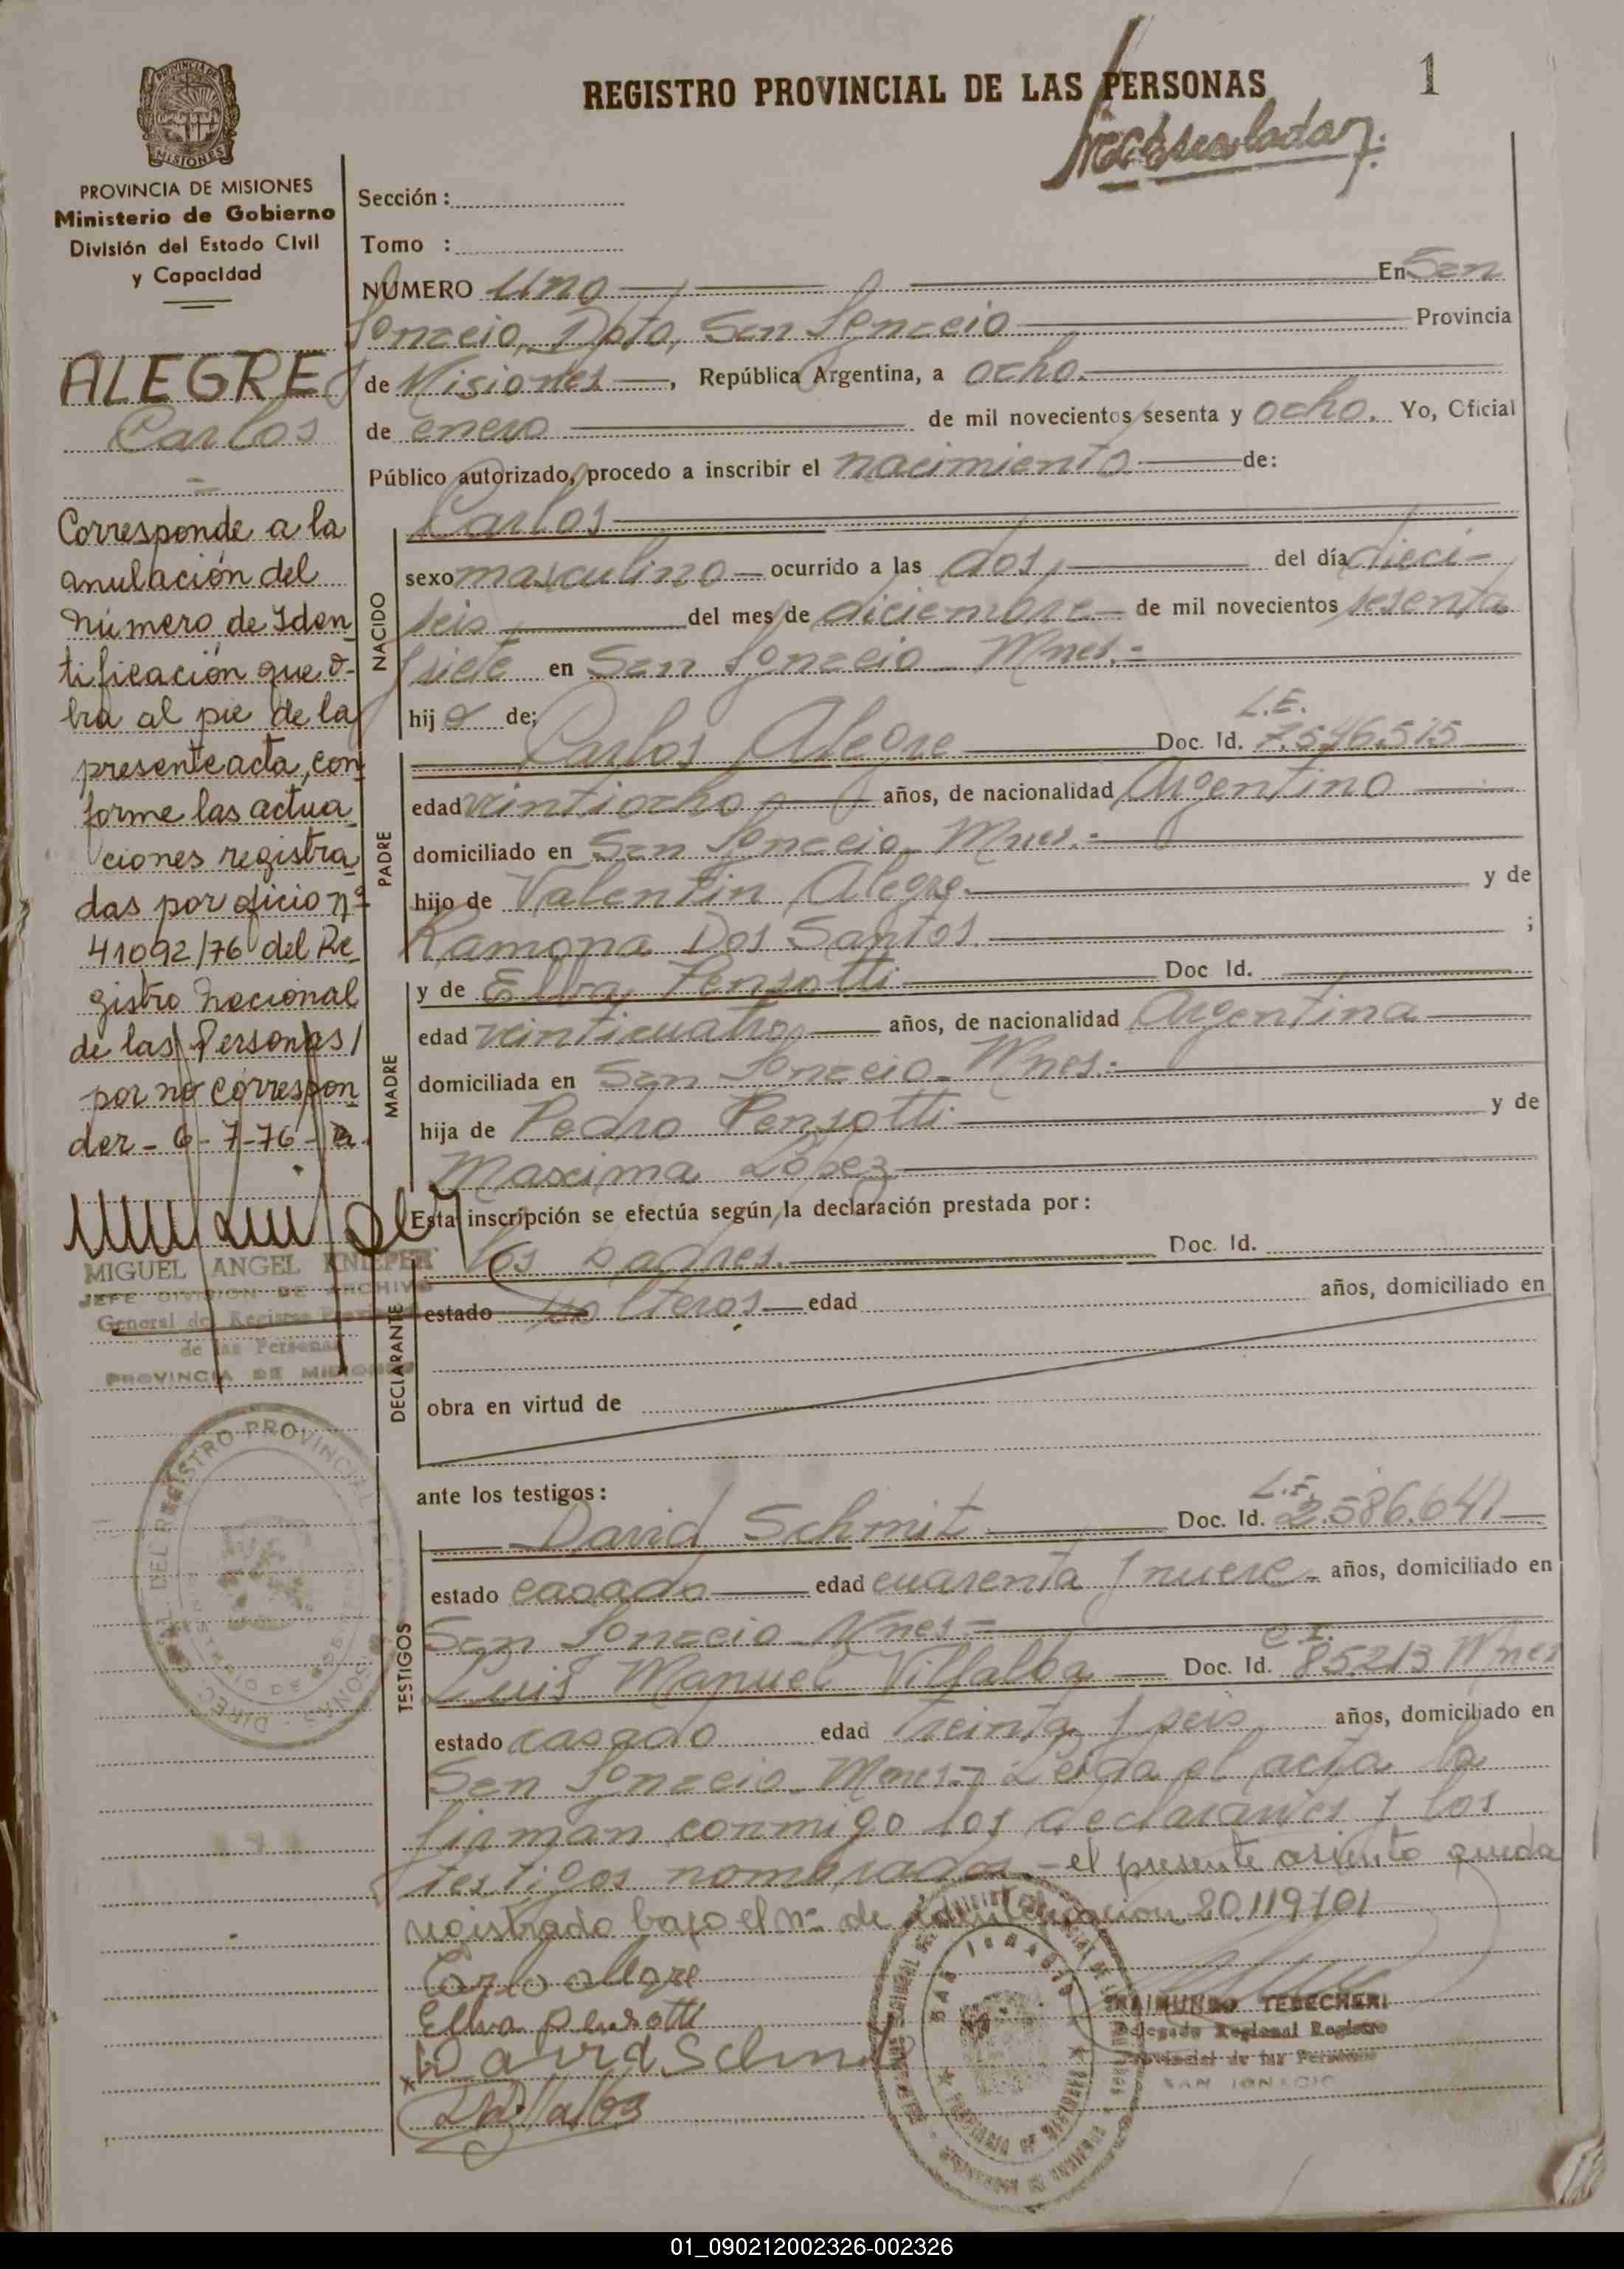 REGISTRO PROVINCIAL DE LAS PERSONAS
1
PROVINCIA DE MISIONES
Ministerio de Gobierno
División del Estado Civil
y Capacidad
ALEGRE
Carlos
Corresponde a la
anulación del
número de Iden
tificación que o-
bra al pie de la
presente acta, con
forme las actua
ciones registra
das por oficio nº
41092/76 del Re
gistro Nacional
de las Personas
por no correspon
der - 6-7-76 -
MIGUEL ANGEL KNIEPER
JEFE DIVISION DE ARCHIVO
General del Registro
de las Personas
PROVINCIA DE MISIONES
Sección:
Tomo :
NÚMERO Uno En San
Ignacio, Dpto, San Ignacio Provincia
de Misiones, República Argentina, a ocho.
de enero de mil novecientos sesenta y ocho. Yo, Oficial
Público autorizado, procedo a inscribir el nacimiento de:
NACIDO
Carlos
sexo masculino ocurrido a las dos, del día dieci-
seis del mes de diciembre de mil novecientos sesenta
y siete en San Ignacio - Mnes.-
hijo de;
L.E.
Carlos Alegre Doc. Id. 7.546.515
PADRE
edad veintiocho años, de nacionalidad Argentino
domiciliado en San Ignacio - Mnes.-
hijo de Valentin Alegre y de
Ramona Dos Santos. ;
MADRE
y de Elba Penzotti Doc Id.
edad veinticuatro años, de nacionalidad Argentina
domiciliada en San Ignacio - Mnes.-
hija de Pedro Penzotti y de
Maxima López
Esta inscripción se efectúa según la declaración prestada por:
DECLARANTE
los padres. Doc. Id.
estado solteros edad años, domiciliado en
obra en virtud de
ante los testigos:
TESTIGOS
L.E.
David Schmit Doc. Id. 2.586.641
estado casado edad cuarenta y nueve años, domiciliado en
San Ignacio - Mnes-
C.I.
Luis Manuel Villalba Doc. Id. 85213 Mnes
estado casado edad treinta y seis años, domiciliado en
San Ignacio - Mnes.- Leida el acta la
firman conmigo los declarantes y los
testigos nombrados.- el presente asiento queda
registrado bajo el nº de identificación 20.119701
Carlo alegre
Elba Penzotti
David Schmit
Villalba
RAIMUNDO TEBECHERI
Delegado Regional Registro
Provincial de las Personas
SAN IGNACIO
01_090212002326-002326